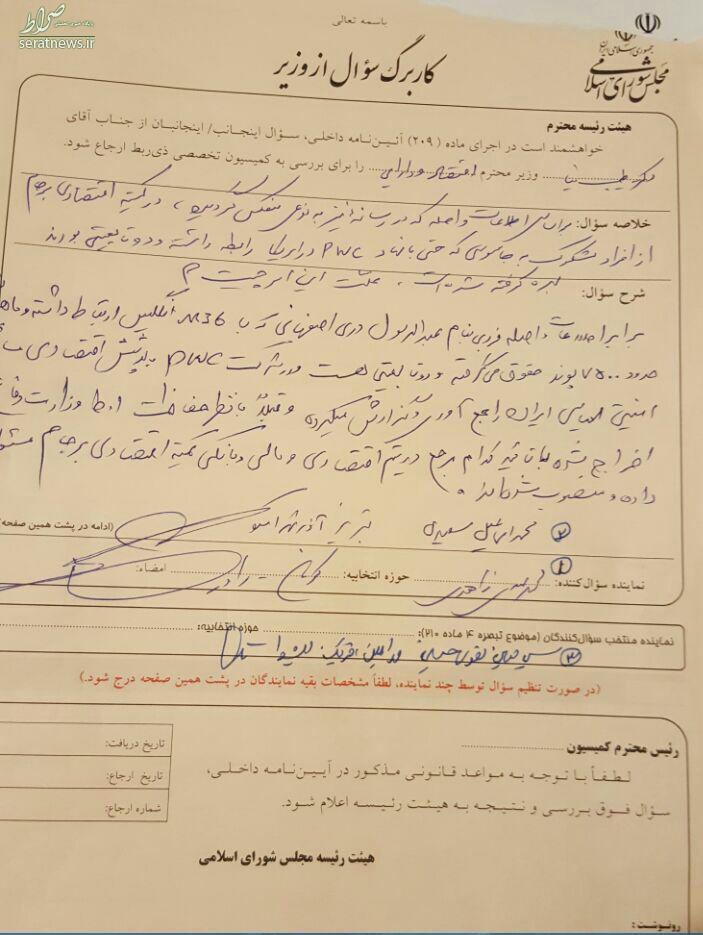 صراط
پایگاه خبری تحلیلی
seratnews.ir
باسمه تعالی
جمهوری اسلامی ایران
مجلس شورای اسلامی
کاربرگ سؤال از وزیر
هیئت رئیسه محترم
خواهشمند است در اجرای ماده (۲۰۹) آئین‌نامه داخلی، سؤال اینجانب/ اینجانبان از جناب آقای
دکتر طیب نیا وزیر محترم اقتصاد و دارایی را برای بررسی به کمیسیون تخصصی ذی‌ربط ارجاع شود.
خلاصه سؤال: براساس اطلاعات واصله که در رسانه ها نیز به نوعی منعکس گردیده، در کمیته اقتصادی برجام
از افراد مشکوک به جاسوسی که حتی با نهاد PWC در امریکا رابطه داشته و دو تابعیتی بودند
بهره گرفته شده است، علت این امر چیست؟
شرح سؤال:
برابر اطلاعات واصله فردی بنام عبدالرسول دری اصفهانی که با MI6 انگلیس ارتباط داشته و ماهانه
حدود ۷۵۰۰ پوند حقوق می گرفته و دو تابعیتی هست و در شرکت PWC پوشش اقتصادی
امنیتی ایران را جمع آوری و گزارش میکرده و قبلاً با نظر حفاظت وزارت دفاع
اخراج شده با تأثیر کدام مرجع در تیم اقتصادی و مالی و بانکی کمیته اقتصادی برجام
داده و منصوب شده اند؟
۲ محمد اسماعیل سعیدی تبریز آذرشهر اسکو
(ادامه در پشت همین صفحه)
۱
نماینده سؤال‌کننده: محمد مهدی زاهدی حوزه انتخابیه: کرمان - راور امضاء:
نماینده منتخب سؤال‌کنندگان (موضوع تبصره ۴ ماده ۲۱۰): حوزه انتخابیه:
۳ نقوی حسینی ورامین، قرچک، پیشوا
(در صورت تنظیم سؤال توسط چند نماینده، لطفاً مشخصات بقیه نمایندگان در پشت همین صفحه درج شود.)
رئیس محترم کمیسیون
لطفـاً با توجه به مواعد قانونی مذکور در آیین‌نامه داخلی،
سؤال فوق بررسی و نتیجه به هیئت رئیسه اعلام شود.
تاریخ دریافت:
تاریخ ارجاع:
شماره ارجاع:
هیئت رئیسه مجلس شورای اسلامی
رونوشت: